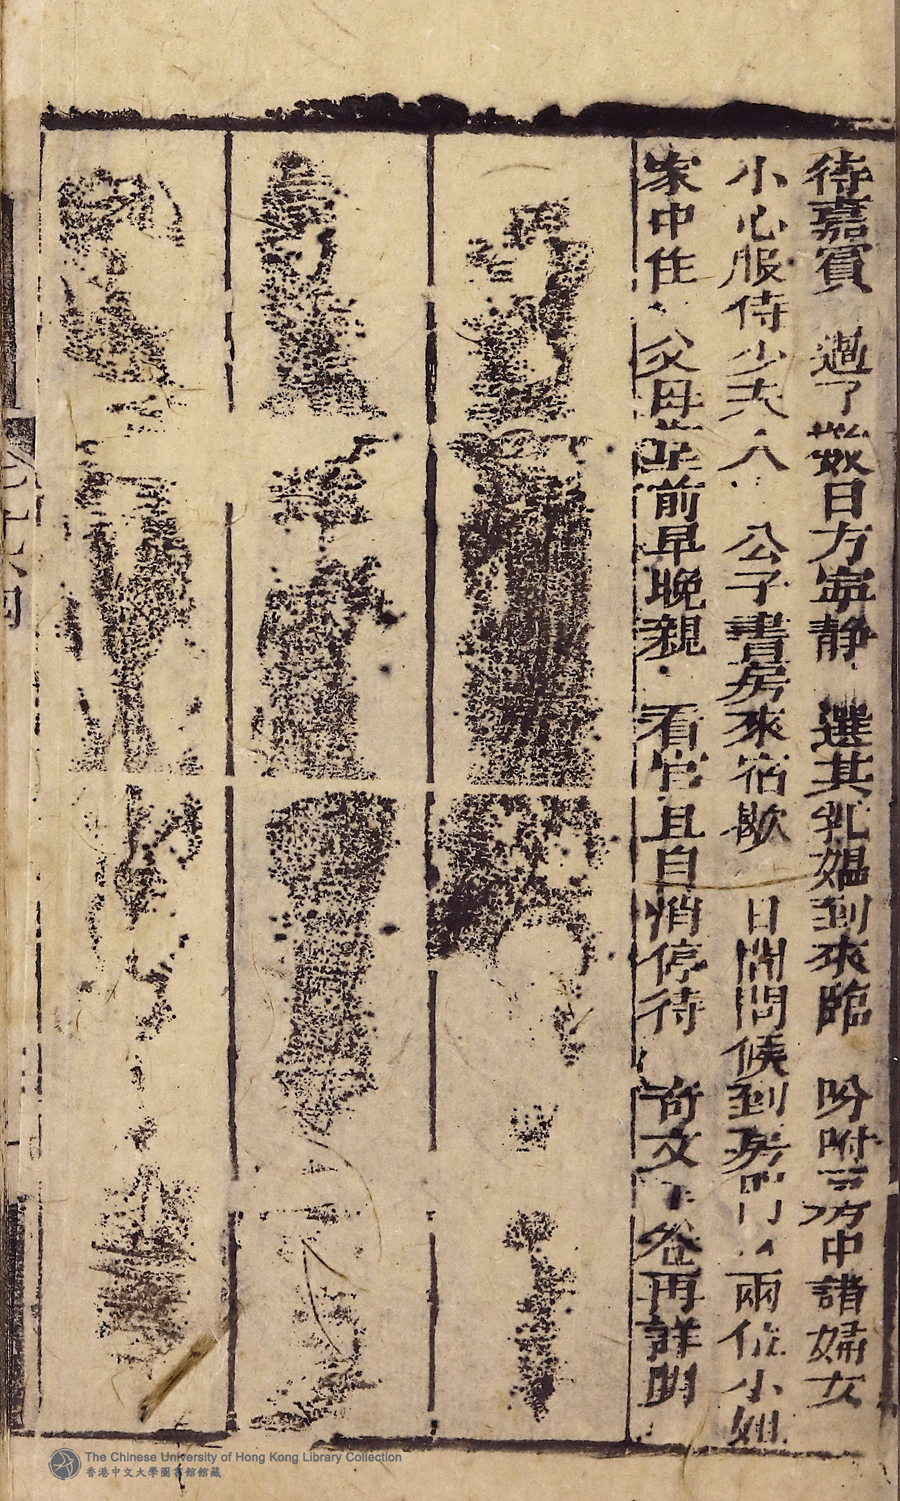 待嘉賓 過了数日方寧靜 選其乳媼到來臨 吩咐 房中諸婦女
小心服侍少夫人 公子書房來宿歇 日間問候到房門 兩位小姐
家中住 父母 前早晚親 看官且自悄停待 奇文 卷再詳明
The Chinese University of Hong Kong Library Collection
香港中文大學圖書館館藏